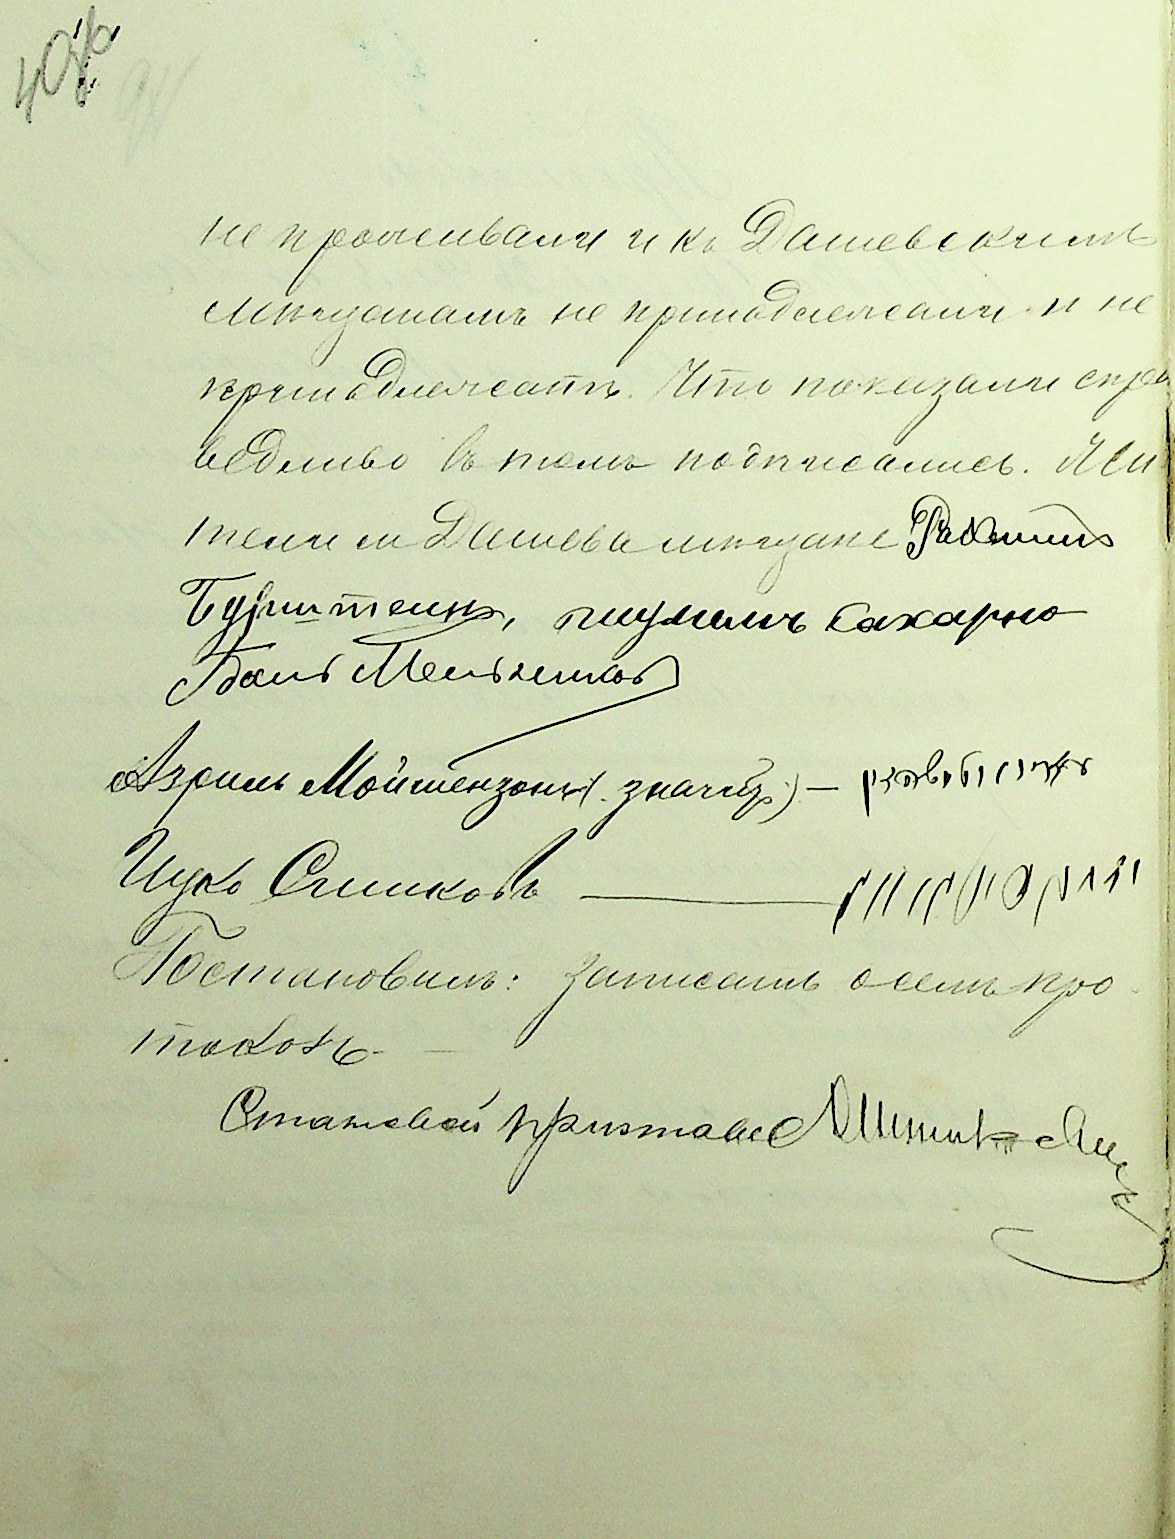 не проживали и къ Дашевскимъ
мѣщанамъ не принадлежали и не
принадлежатъ. Что показали спра
ведливо въ томъ подписались. Жи
тели м Дашева мѣщане
Бурштейнъ, Шулимъ Сахарно
Азриль Мойшензонъ
Ицко Спиковъ
Постановилъ: записать о семъ про
токолъ
Становой приставъ